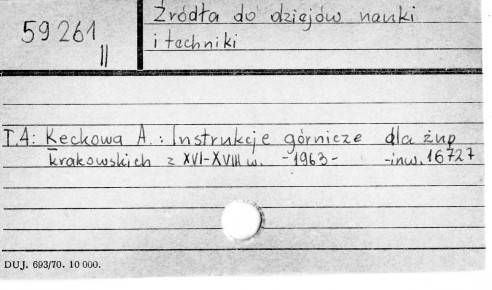 59261
II
Źródła do dziejów nauki
i techniki
T.4: Keckowa A.: Instrukcje górnicze dla żup
krakowskich z XVI-XVIII w. -1963- -inw. 16727
DUJ. 693/70. 10 000.